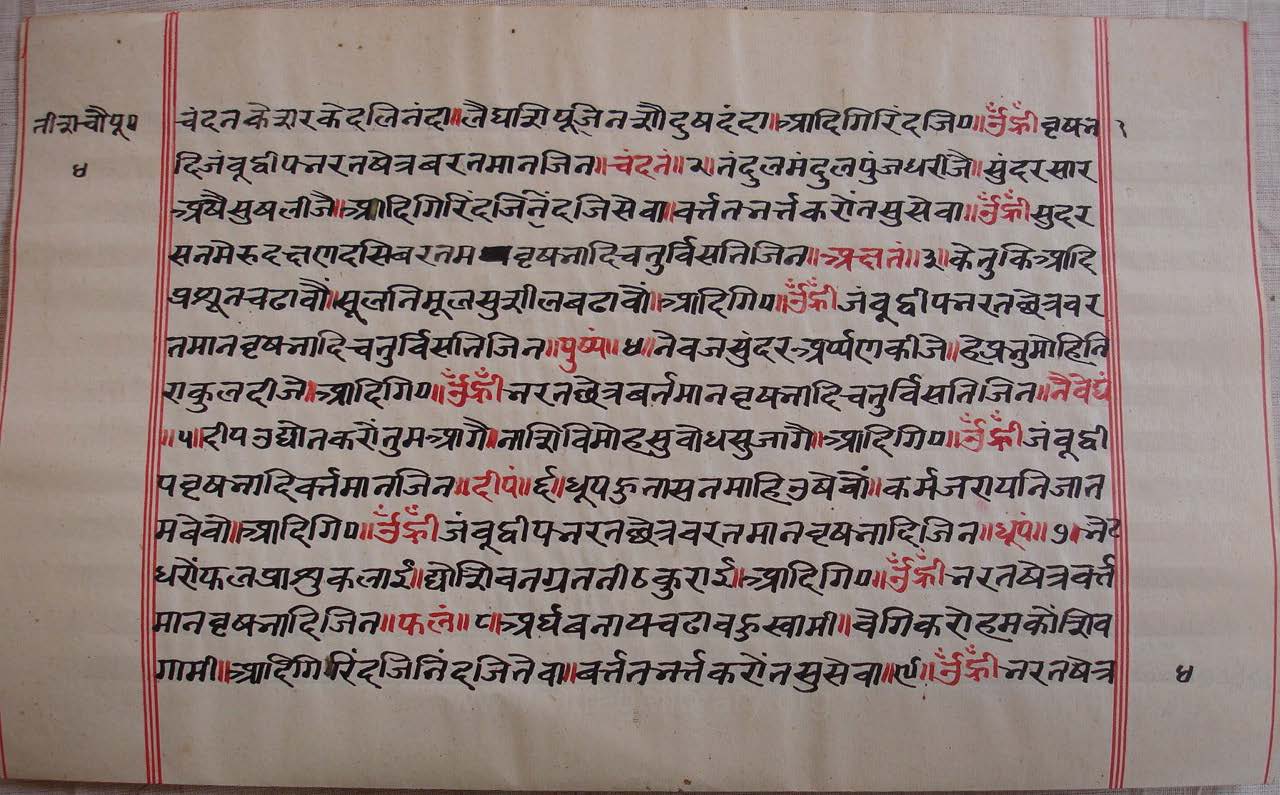 तीसचौपू॰
४
चंदनकेसरकेदलिनंदा॥लैघसिपूजिनसौदुषदंदा॥आदिगिरिंदजि॰॥ॐह्रीवृषभ १
दिजंबूद्वीपभरतषेत्रबरतमानजिन॥चंदनं॥२॥तंदुलमंदुलपुंजधरीजै॥सुंदरसार
अषैसुषलीजै॥आदिगिरिंदजिनेंदजिसेवा॥वर्त्ततभर्त्तकरोंतसुसेवा॥ॐह्रीसुदर
सनमेरुदक्षणदसिबरतम वृषभादिचतुर्विसतिजिन॥अक्षतं॥३॥केतुकिआदि
प्रशूतचढावौं॥सूलनिमूलसुशीलबढावौं॥आदिगि॰॥ॐह्रीजंबूद्वीपभरतछेत्रवर
तमानवृषभादिचतुर्विसतिजिन॥पुष्पं॥४॥नेवजसुंदरअर्प्पणकीजे॥हेप्रभुमोहिनि
राकुलदीजे॥आदिगि॰॥ॐह्रीभरतछेत्रबर्तमानवृषभादिचतुर्विसतिजिन॥नैवेद्यं
॥५॥दीपउद्योतकरोंतुमआगै॥नासिविमोहसुवोधसुजागै॥आदिगि॰॥ॐह्रीजंवूद्वी
पवृषभादिवर्त्तमानजिन॥दीपं॥६॥धूपहुतासनमाहिउषेवों॥कर्मजरायनिजात
मबेवो॥आदिगि॰॥ॐह्रीजंवूद्वीपभरतछेत्रवरतमानवृषभादिजिन॥धूपं॥७॥भेट
धरोंफलप्राशुकलाई॥द्योसिवनग्रतनीठकुराई॥आदिगि॰॥ॐह्रीभरतषेत्रवर्त्त
मानवृषभादिजिन॥फलं॥८॥अर्घबनायचढावहुस्वामी॥वेगिकरोहमकोंसिव
गामी॥आदिगिरिंदजिनिंदजितेवा॥बर्त्ततभर्त्तकरोंतसुसेवा॥९॥ॐह्रीभरतषेत्र
४